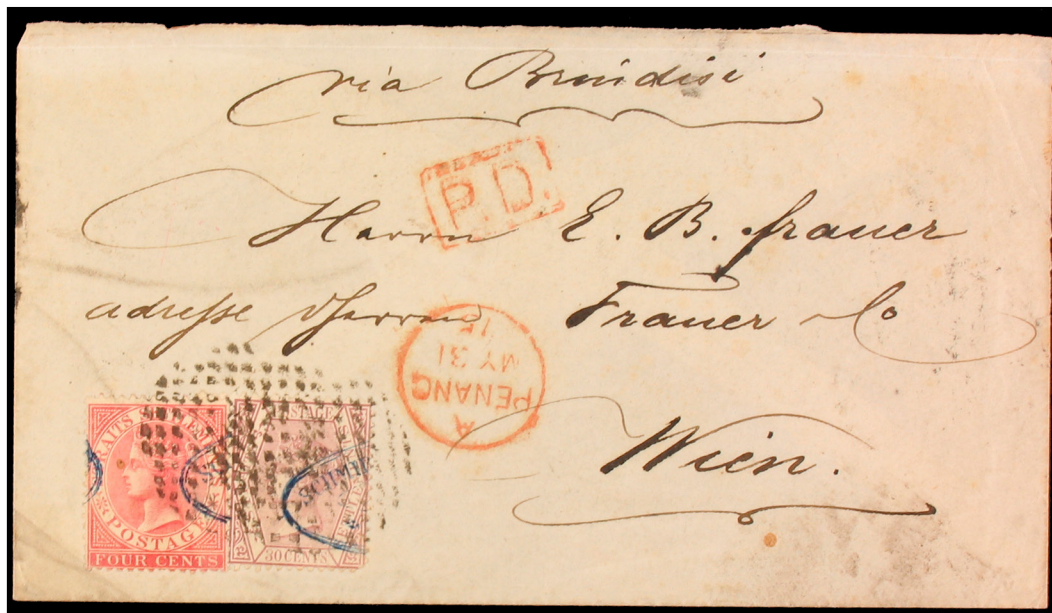 via Brindisi
P.D.
Herrn E. B. Frauer
adresse Herren Frauer Co
A
PENANG
MY 31
Wien.
STRAITS SETTLEMENTS
POSTAGE
FOUR CENTS
POSTAGE
30 CENTS